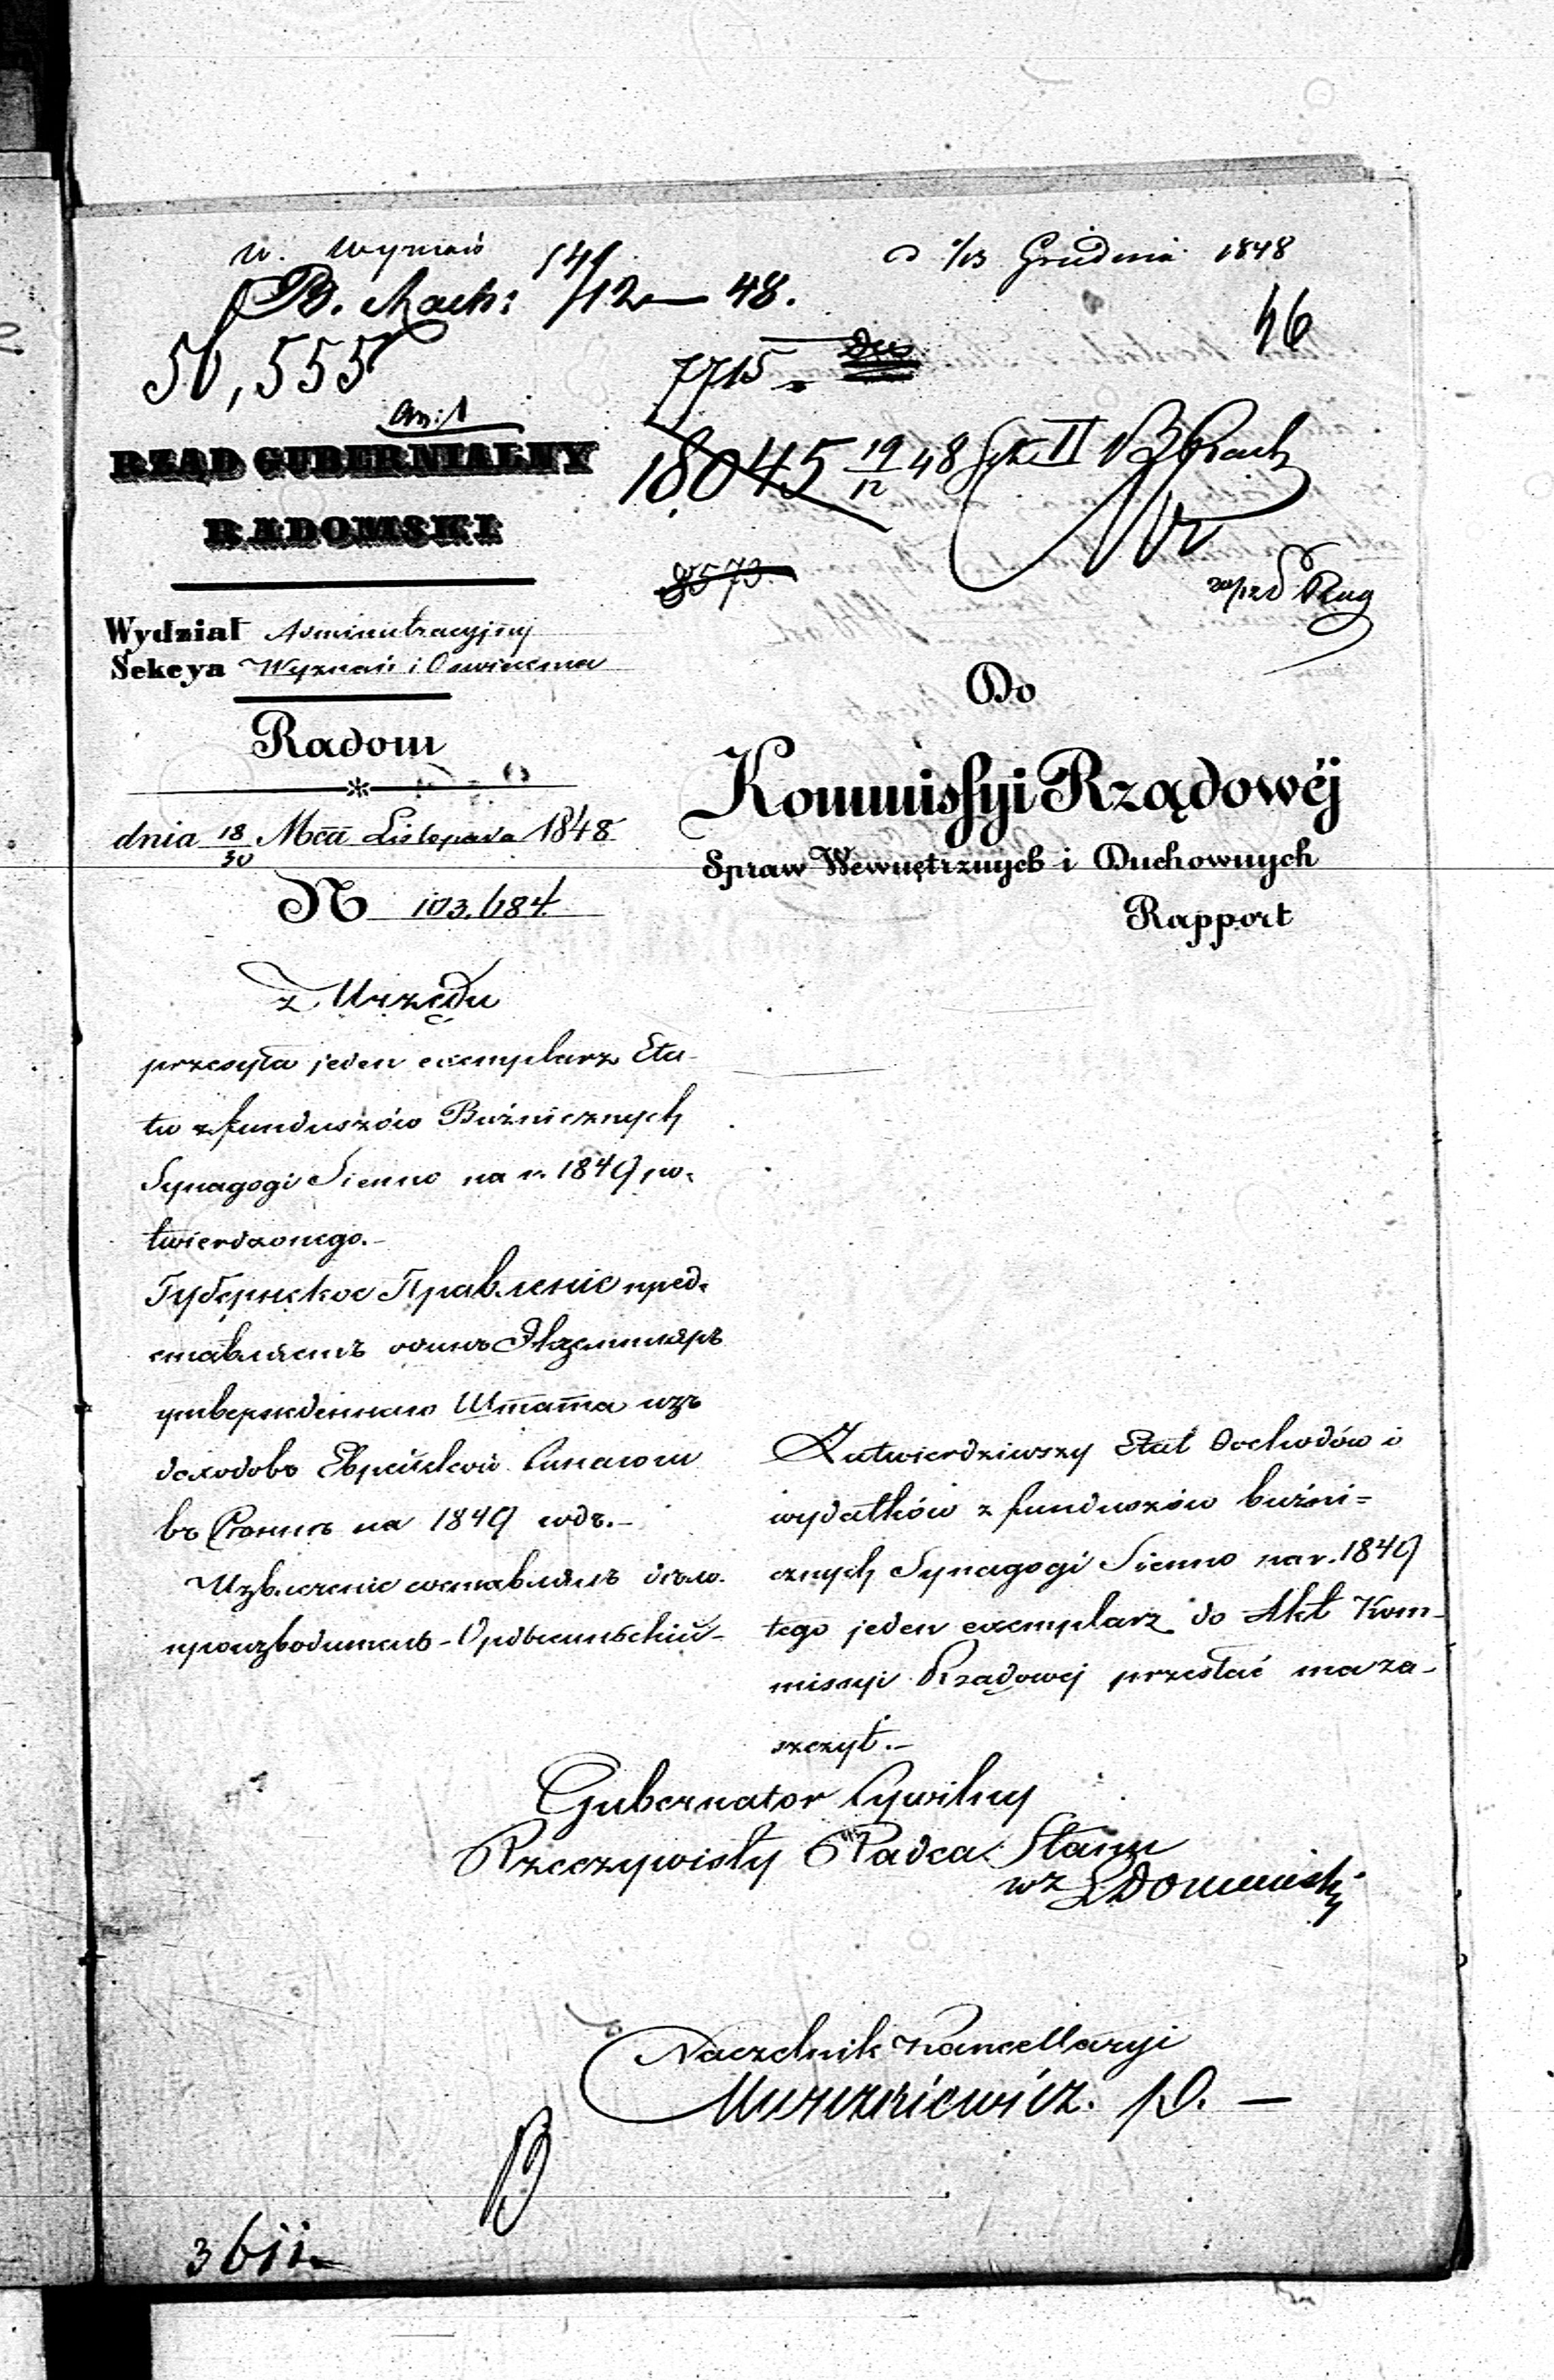 W. Wyznań
1/13 Grudnia 1848
B. Rach: 14/12 — 48.
46
50,555
7715
An: 1
18045 19/12 48 II
RZĄD GUBERNIALNY
RADOMSKI
8573
Wydział Administracyjny
Sekcya Wyznań i Oświecenia
Do
Radom
Kommissyi Rządowéj
dnia 18/30 Mca Listopada 1848
Spraw Wewnętrznych i Duchownych
N 103.684
Rapport
z Urzędu
przesyła jeden exemplarz Eta-
tu z funduszów Bóżnicznych
Synagogi Sienno na r. 1849 po-
twierdzonego.-
Губернское Правленіе пред-
ставляетъ одинъ Экземпляръ
утвержденнаго Штата изъ
доходовъ Еврейской Синагоги
въ Сѣннѣ на 1849 годъ.-
Извлеченіе составлялъ дѣло-
производитель
Zatwierdziwszy Etat Dochodów i
wydatków z funduszów bużni=
cznych Synagogi Sienno na r. 1849
tego jeden exemplarz do Akt Kom-
missyi Rządowej przesłać ma za-
szczyt.-
Gubernator Cywilny
Rzeczywisty Radca Stanu
wz
Naczelnik Kancellaryi